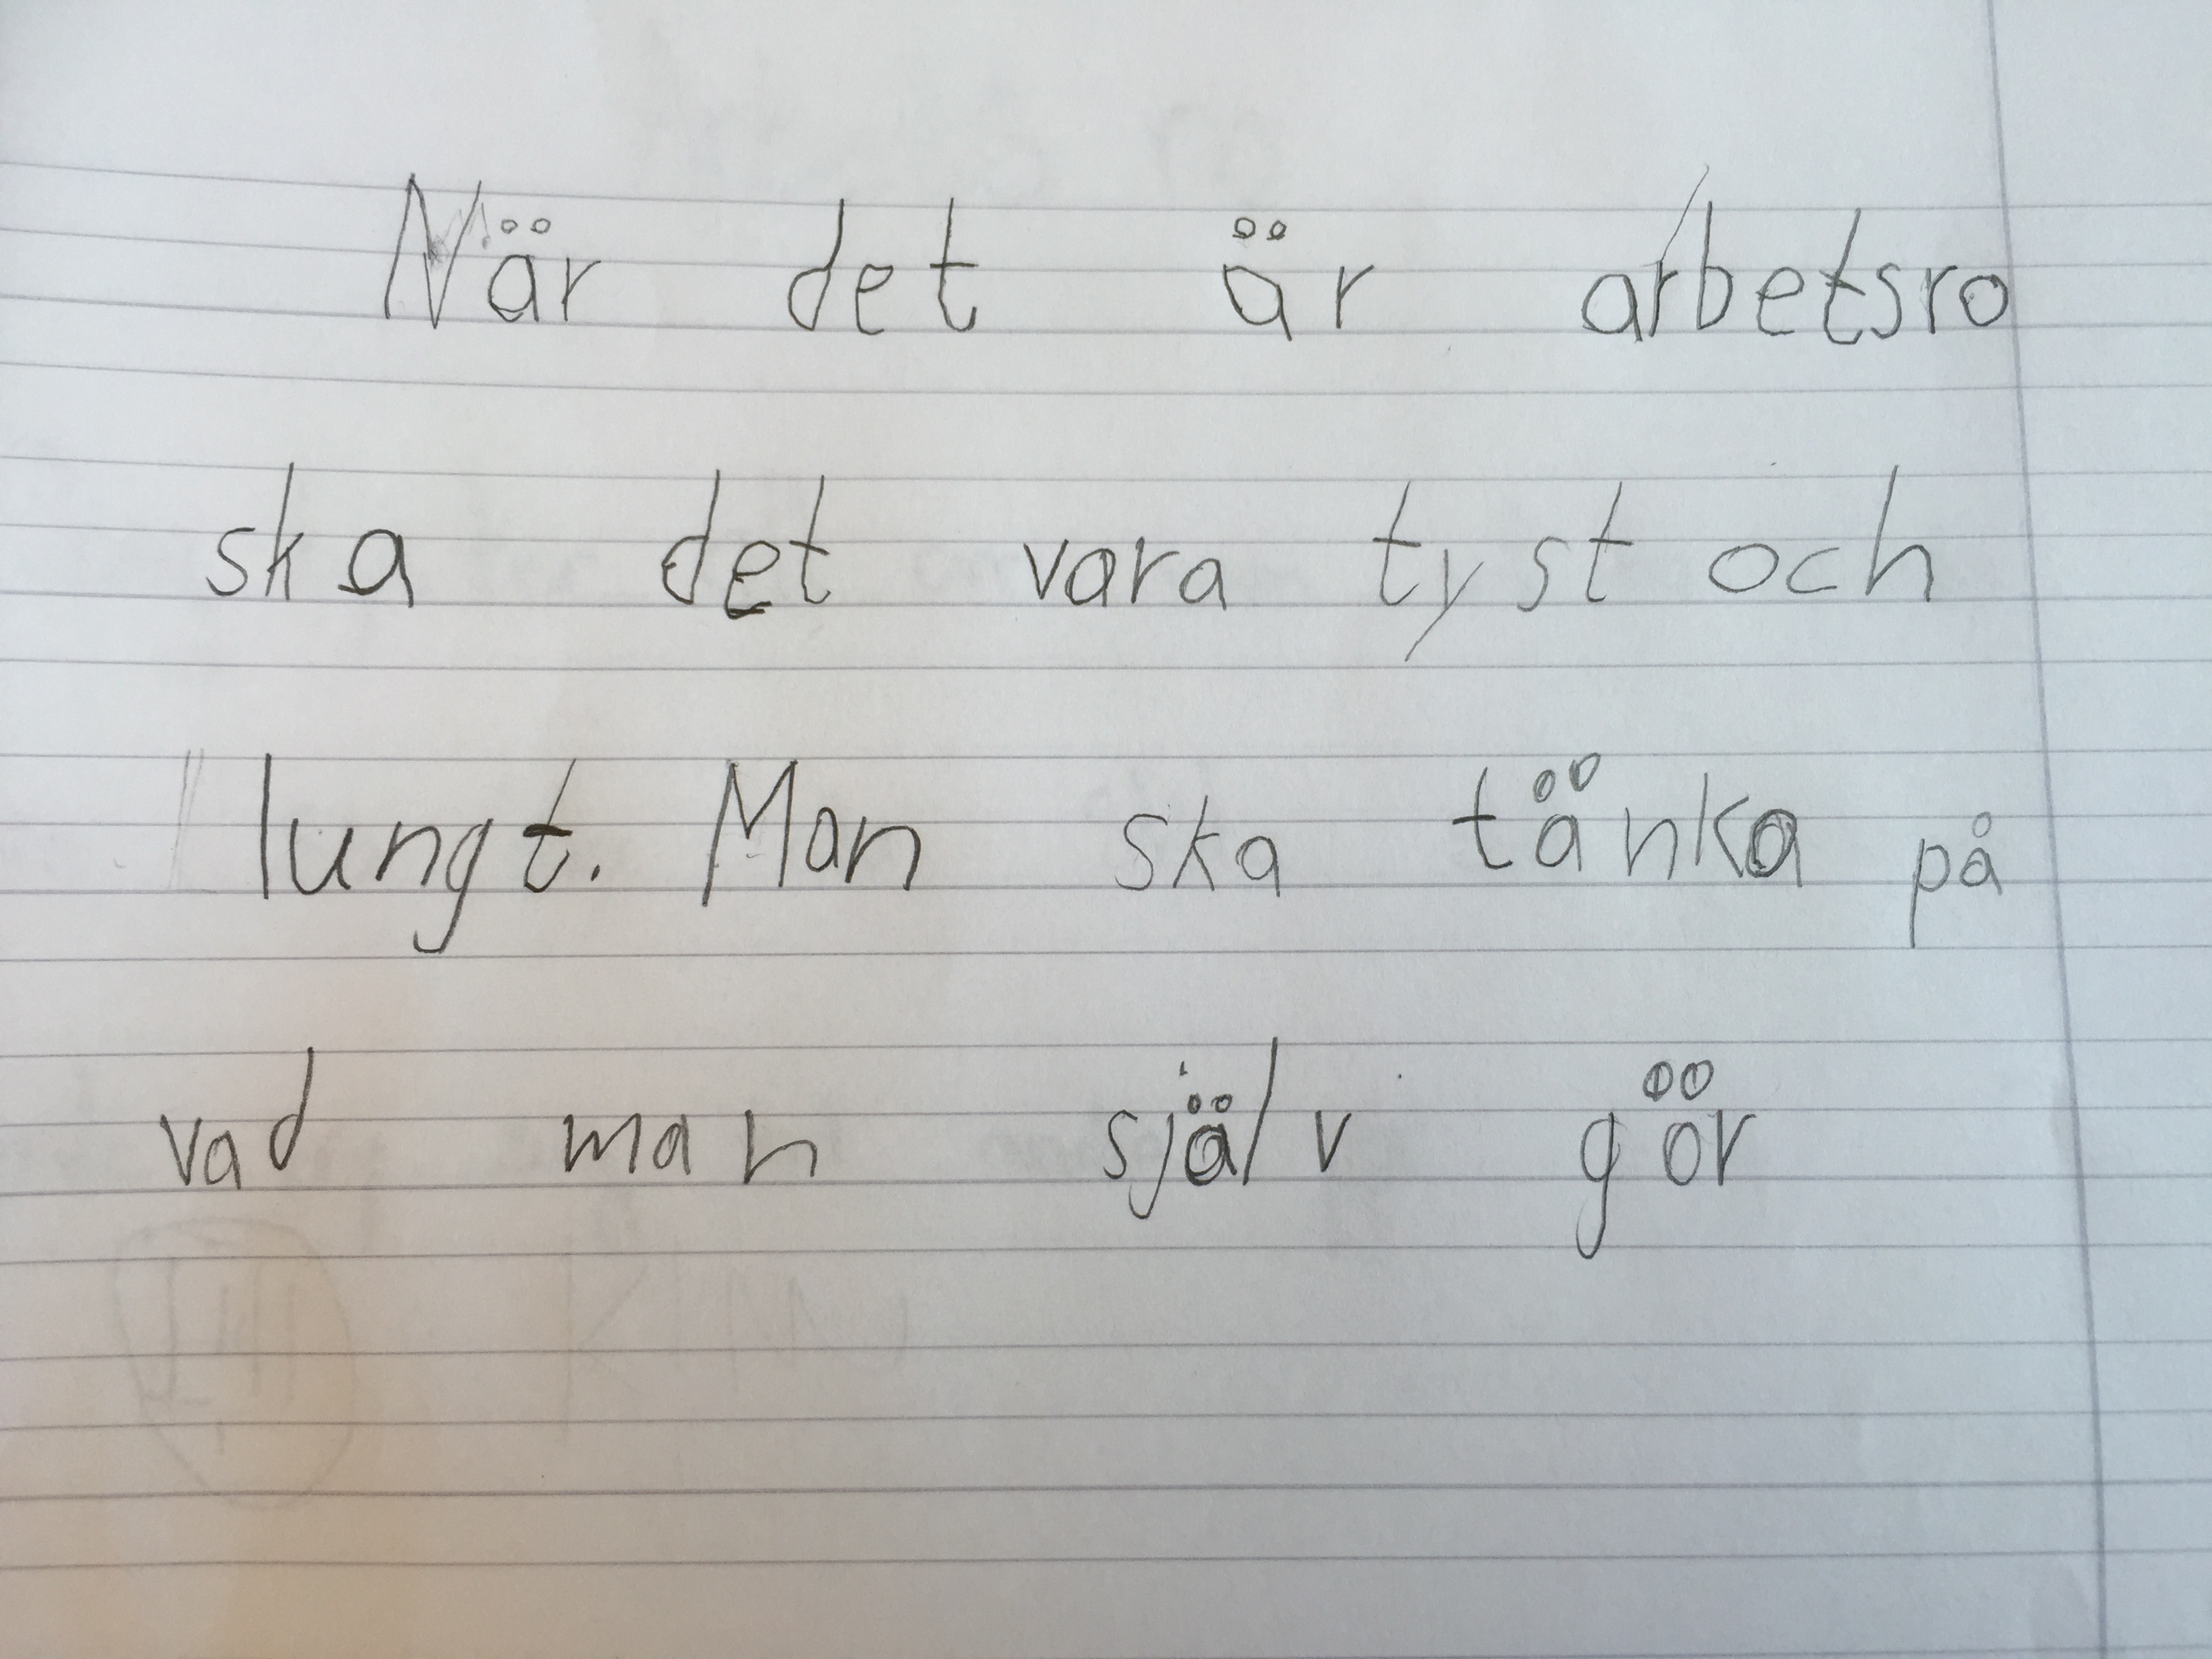 När det är arbetsro
ska det vara tyst och
lungt. Man ska tänka på
vad man själv gör